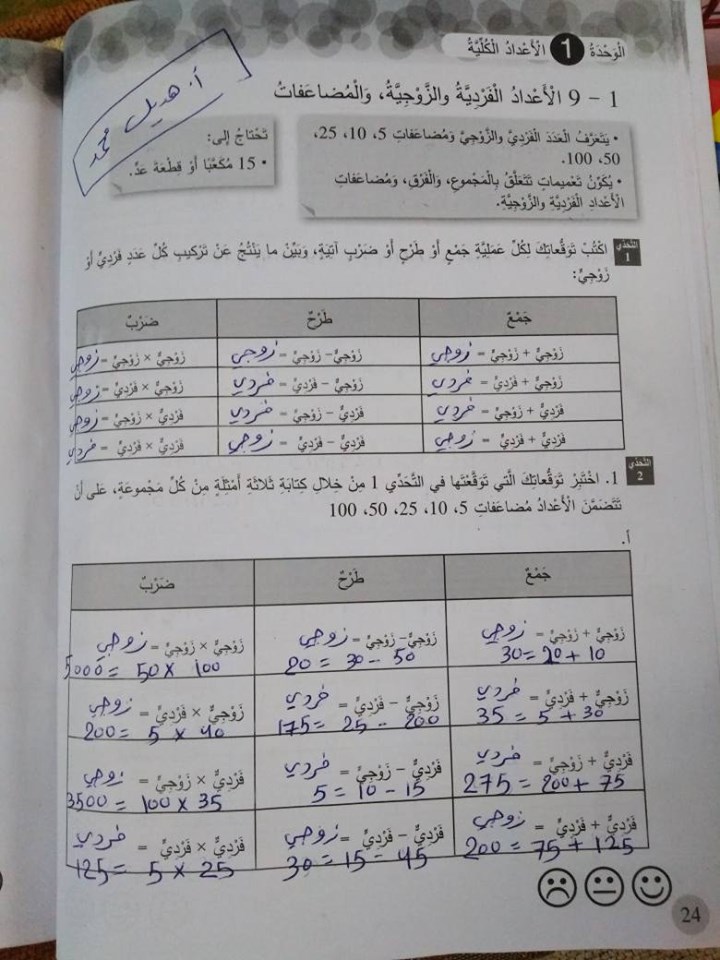 الْوَحْدَةُ 1 الْأَعْدادُ الْكُلِّيَّةُ
أ. هديل محمد
1 - 9 الْأَعْدادُ الْفَرْدِيَّةُ والزَّوْجِيَّةُ، وَالْمُضاعَفاتُ
• يَتَعَرَّفُ الْعَدَدَ الْفَرْدِيَّ والزَّوْجِيَّ وَمُضاعَفاتِ 5، 10، 25،
50، 100.
• يُكَوِّنُ تَعْمِيماتٍ تَتَعَلَّقُ بِالْمَجْموعِ، وَالْفَرْقِ، وَمُضاعَفاتِ
الْأَعْدادِ الْفَرْدِيَّةِ والزَّوْجِيَّةِ.
تَحْتاجُ إِلى:
• 15 مُكَعَّبًا أَوْ قِطْعَةَ عَدٍّ.
التَّحَدّي 1
اكْتُبْ تَوَقُّعاتِكَ لِكُلِّ عَمَلِيَّةِ جَمْعٍ أَوْ طَرْحٍ أَوْ ضَرْبٍ آتِيَةٍ، وَبَيِّنْ ما يَنْتُجُ عَنْ تَرْكيبِ كُلِّ عَدَدٍ فَرْدِيٍّ أَوْ
زَوْجِيٍّ:
جَمْعٌ طَرْحٌ ضَرْبٌ
زَوْجِيٌّ + زَوْجِيٌّ = زوجي زَوْجِيٌّ – زَوْجِيٌّ = زوجي زَوْجِيٌّ × زَوْجِيٌّ = زوجي
زَوْجِيٌّ + فَرْدِيٌّ = فردي زَوْجِيٌّ – فَرْدِيٌّ = فردي زَوْجِيٌّ × فَرْدِيٌّ = زوجي
فَرْدِيٌّ + زَوْجِيٌّ = فردي فَرْدِيٌّ – زَوْجِيٌّ = فردي فَرْدِيٌّ × زَوْجِيٌّ = زوجي
فَرْدِيٌّ + فَرْدِيٌّ = زوجي فَرْدِيٌّ – فَرْدِيٌّ = زوجي فَرْدِيٌّ × فَرْدِيٌّ = فردي
التَّحَدّي 2
1. اخْتَبِرْ تَوَقُّعاتِكَ الَّتي تَوَقَّعْتَها في التَّحَدّي 1 مِنْ خِلالِ كِتابَةِ ثَلاثَةِ أَمْثِلَةٍ مِنْ كُلِّ مَجْموعَةٍ، عَلى أَنْ
تَتَضَمَّنَ الْأَعْدادُ مُضاعَفاتِ 5، 10، 25، 50، 100
أ.
جَمْعٌ طَرْحٌ ضَرْبٌ
زَوْجِيٌّ + زَوْجِيٌّ = زوجي زَوْجِيٌّ – زَوْجِيٌّ = زوجي زَوْجِيٌّ × زَوْجِيٌّ = زوجي
30 = 20 + 10 20 = 30 - 50 5000 = 50 × 100
زَوْجِيٌّ + فَرْدِيٌّ = فردي زَوْجِيٌّ – فَرْدِيٌّ = فردي زَوْجِيٌّ × فَرْدِيٌّ = زوجي
35 = 5 + 30 175 = 25 - 200 200 = 5 × 40
فَرْدِيٌّ + زَوْجِيٌّ = فردي فَرْدِيٌّ – زَوْجِيٌّ = فردي فَرْدِيٌّ × زَوْجِيٌّ = زوجي
275 = 200 + 75 5 = 10 - 15 3500 = 100 × 35
فَرْدِيٌّ + فَرْدِيٌّ = زوجي فَرْدِيٌّ – فَرْدِيٌّ = زوجي فَرْدِيٌّ × فَرْدِيٌّ = فردي
200 = 75 + 125 30 = 15 - 45 125 = 5 × 25
24